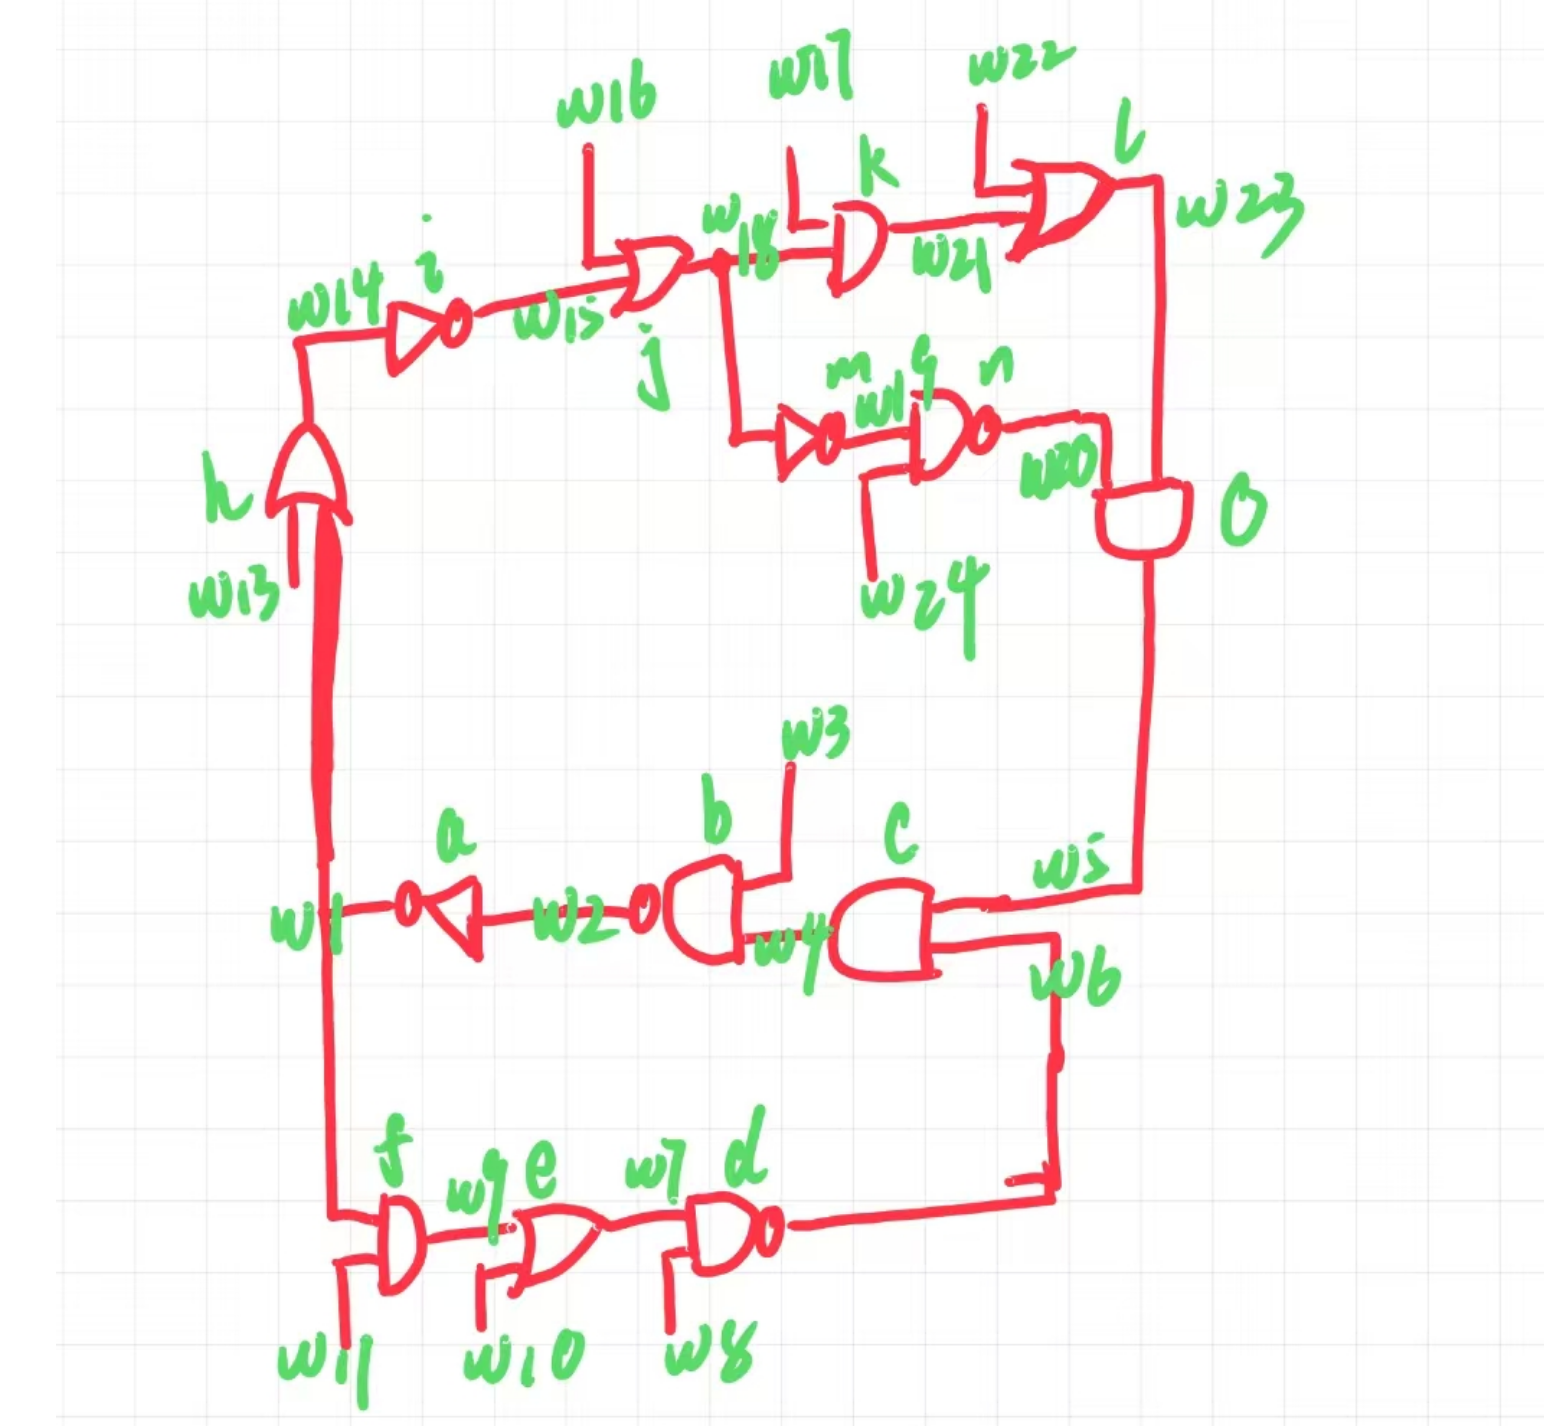 w16
w17
w22
k
l
w18
w23
i
w14
w15
w21
j
m
w19
n
w20
h
o
w13
w24
w3
b
c
a
w5
w1
w2
w4
w6
f
w9
e
w7
d
w11
w10
w8